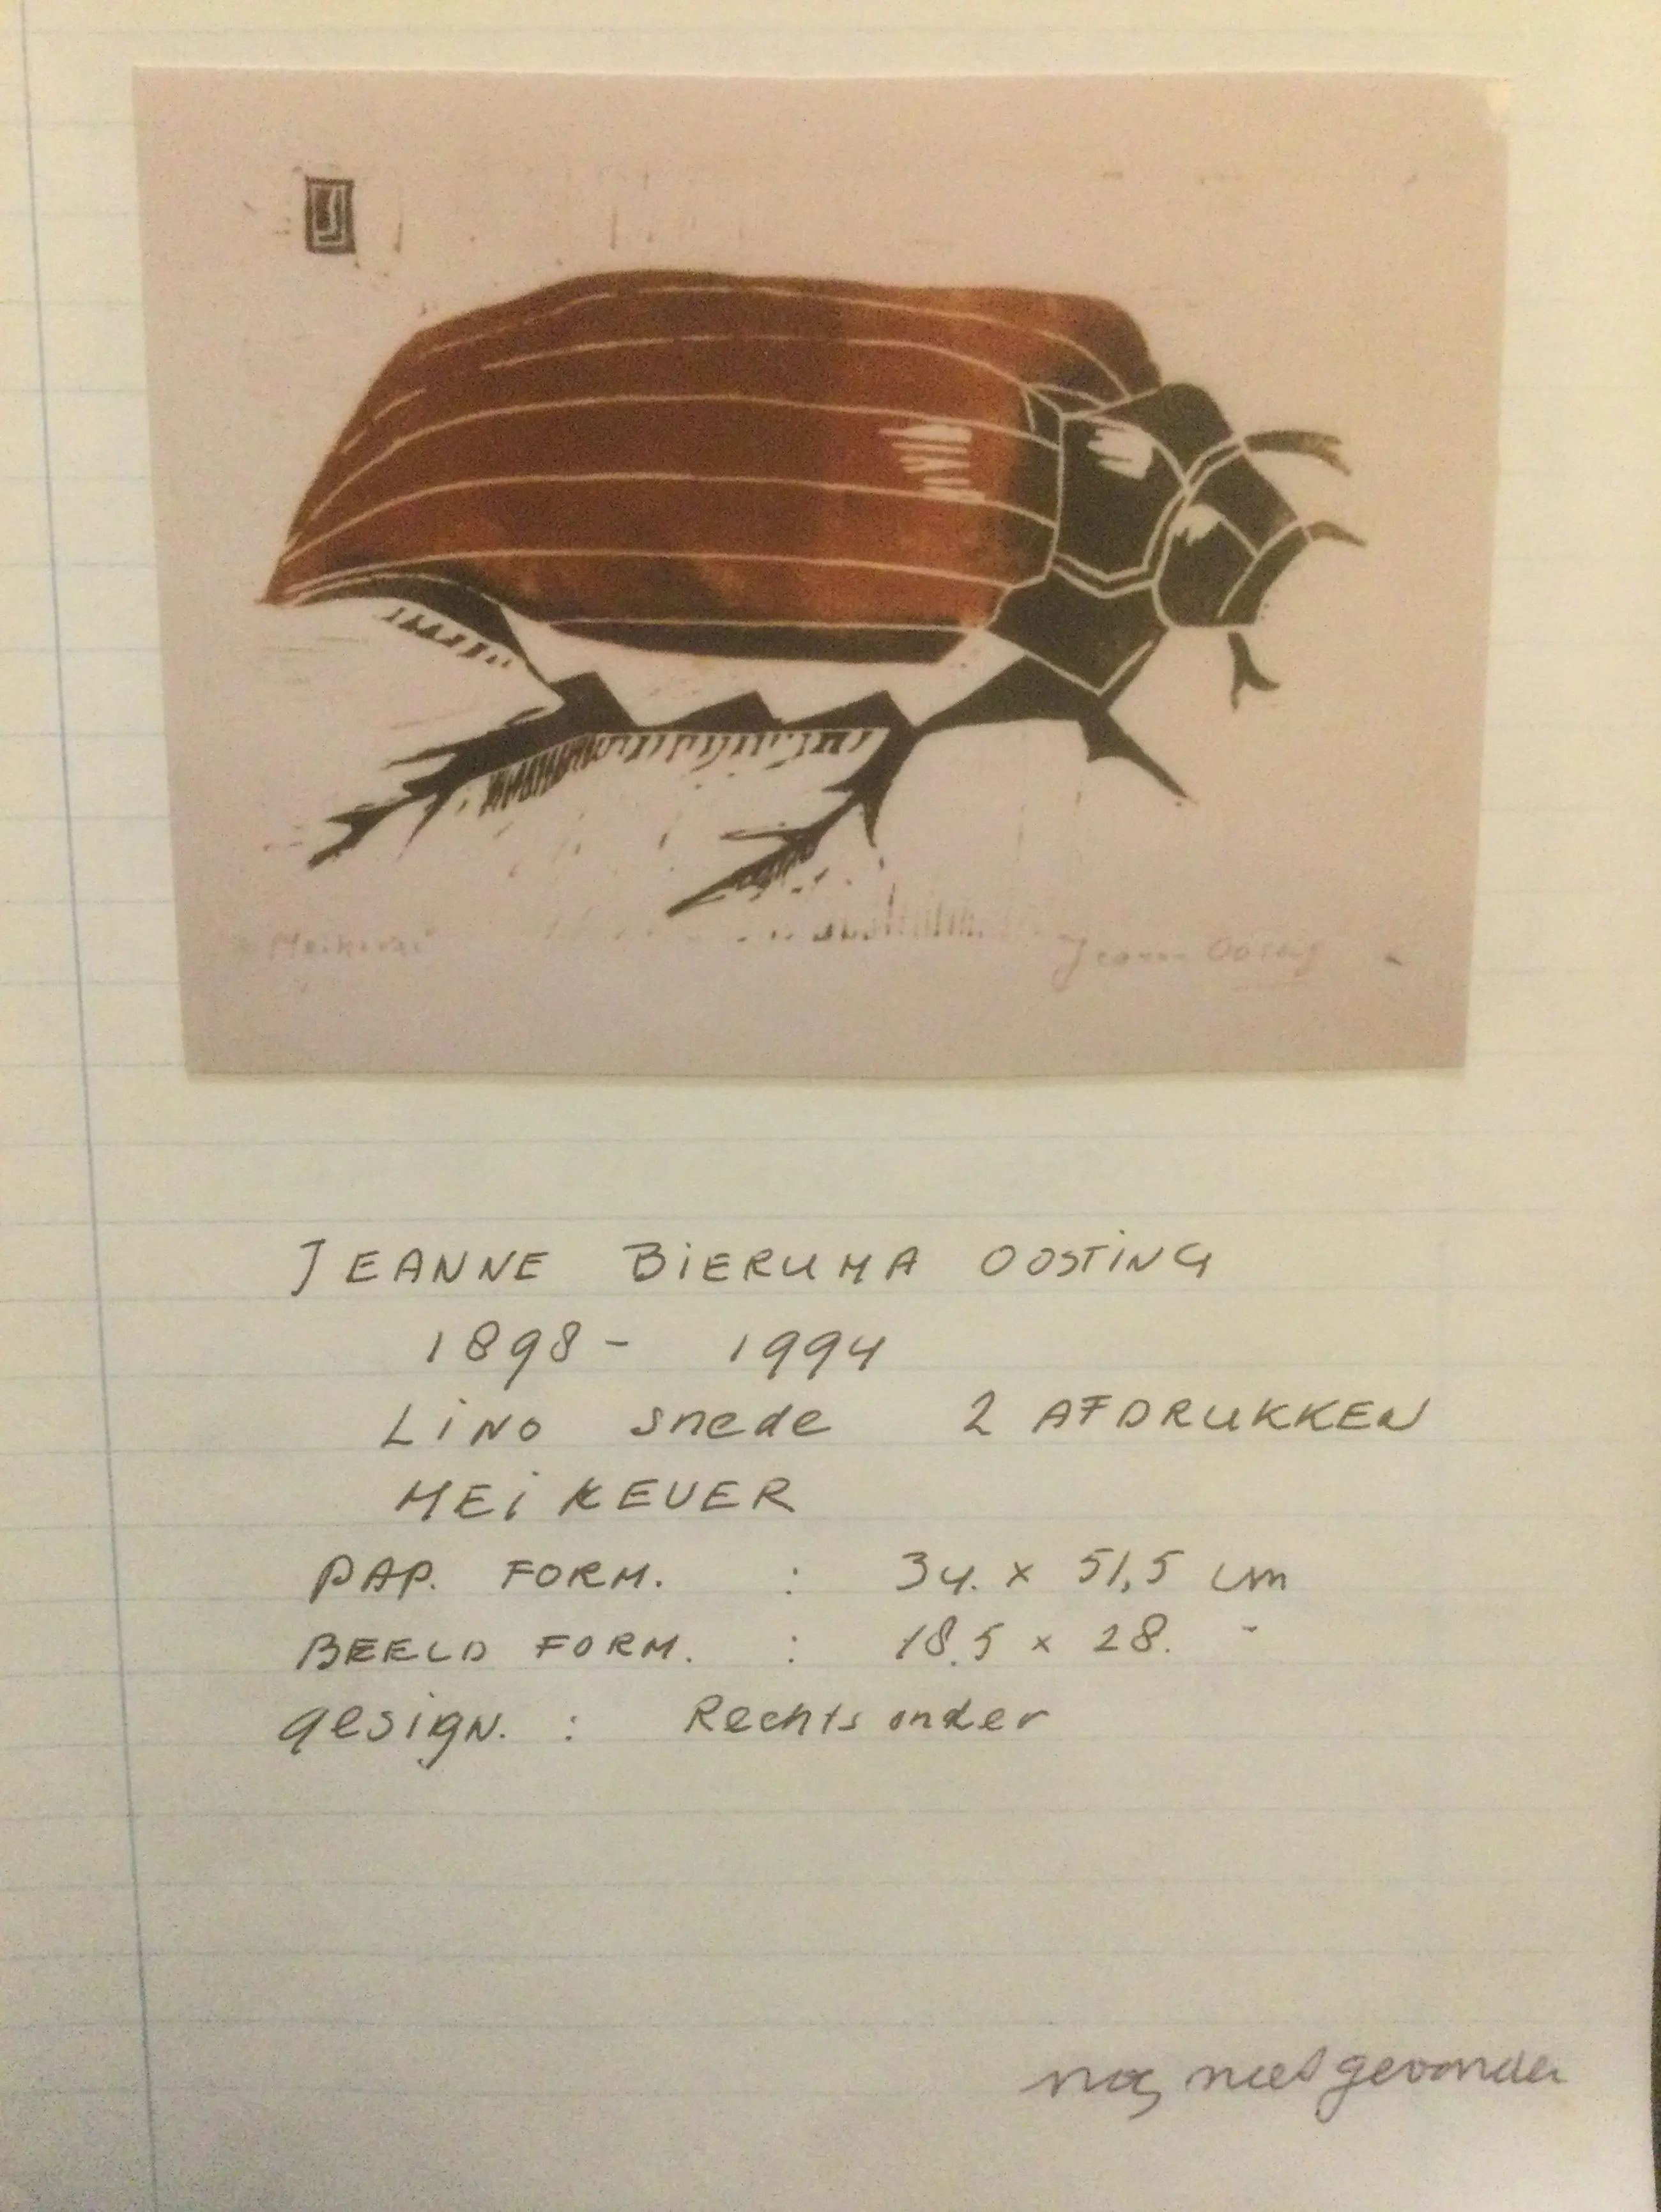 "Meikever"
Jeanne Oosting
JEANNE BIERUMA OOSTING
1898 - 1994
LINO snede 2 AFDRUKKEN
MEI KEVER
PAP. FORM. : 34. x 51,5 cm
BEELD FORM. : 18.5 x 28. -
gesign. : Rechts onder
nog niet gevonden